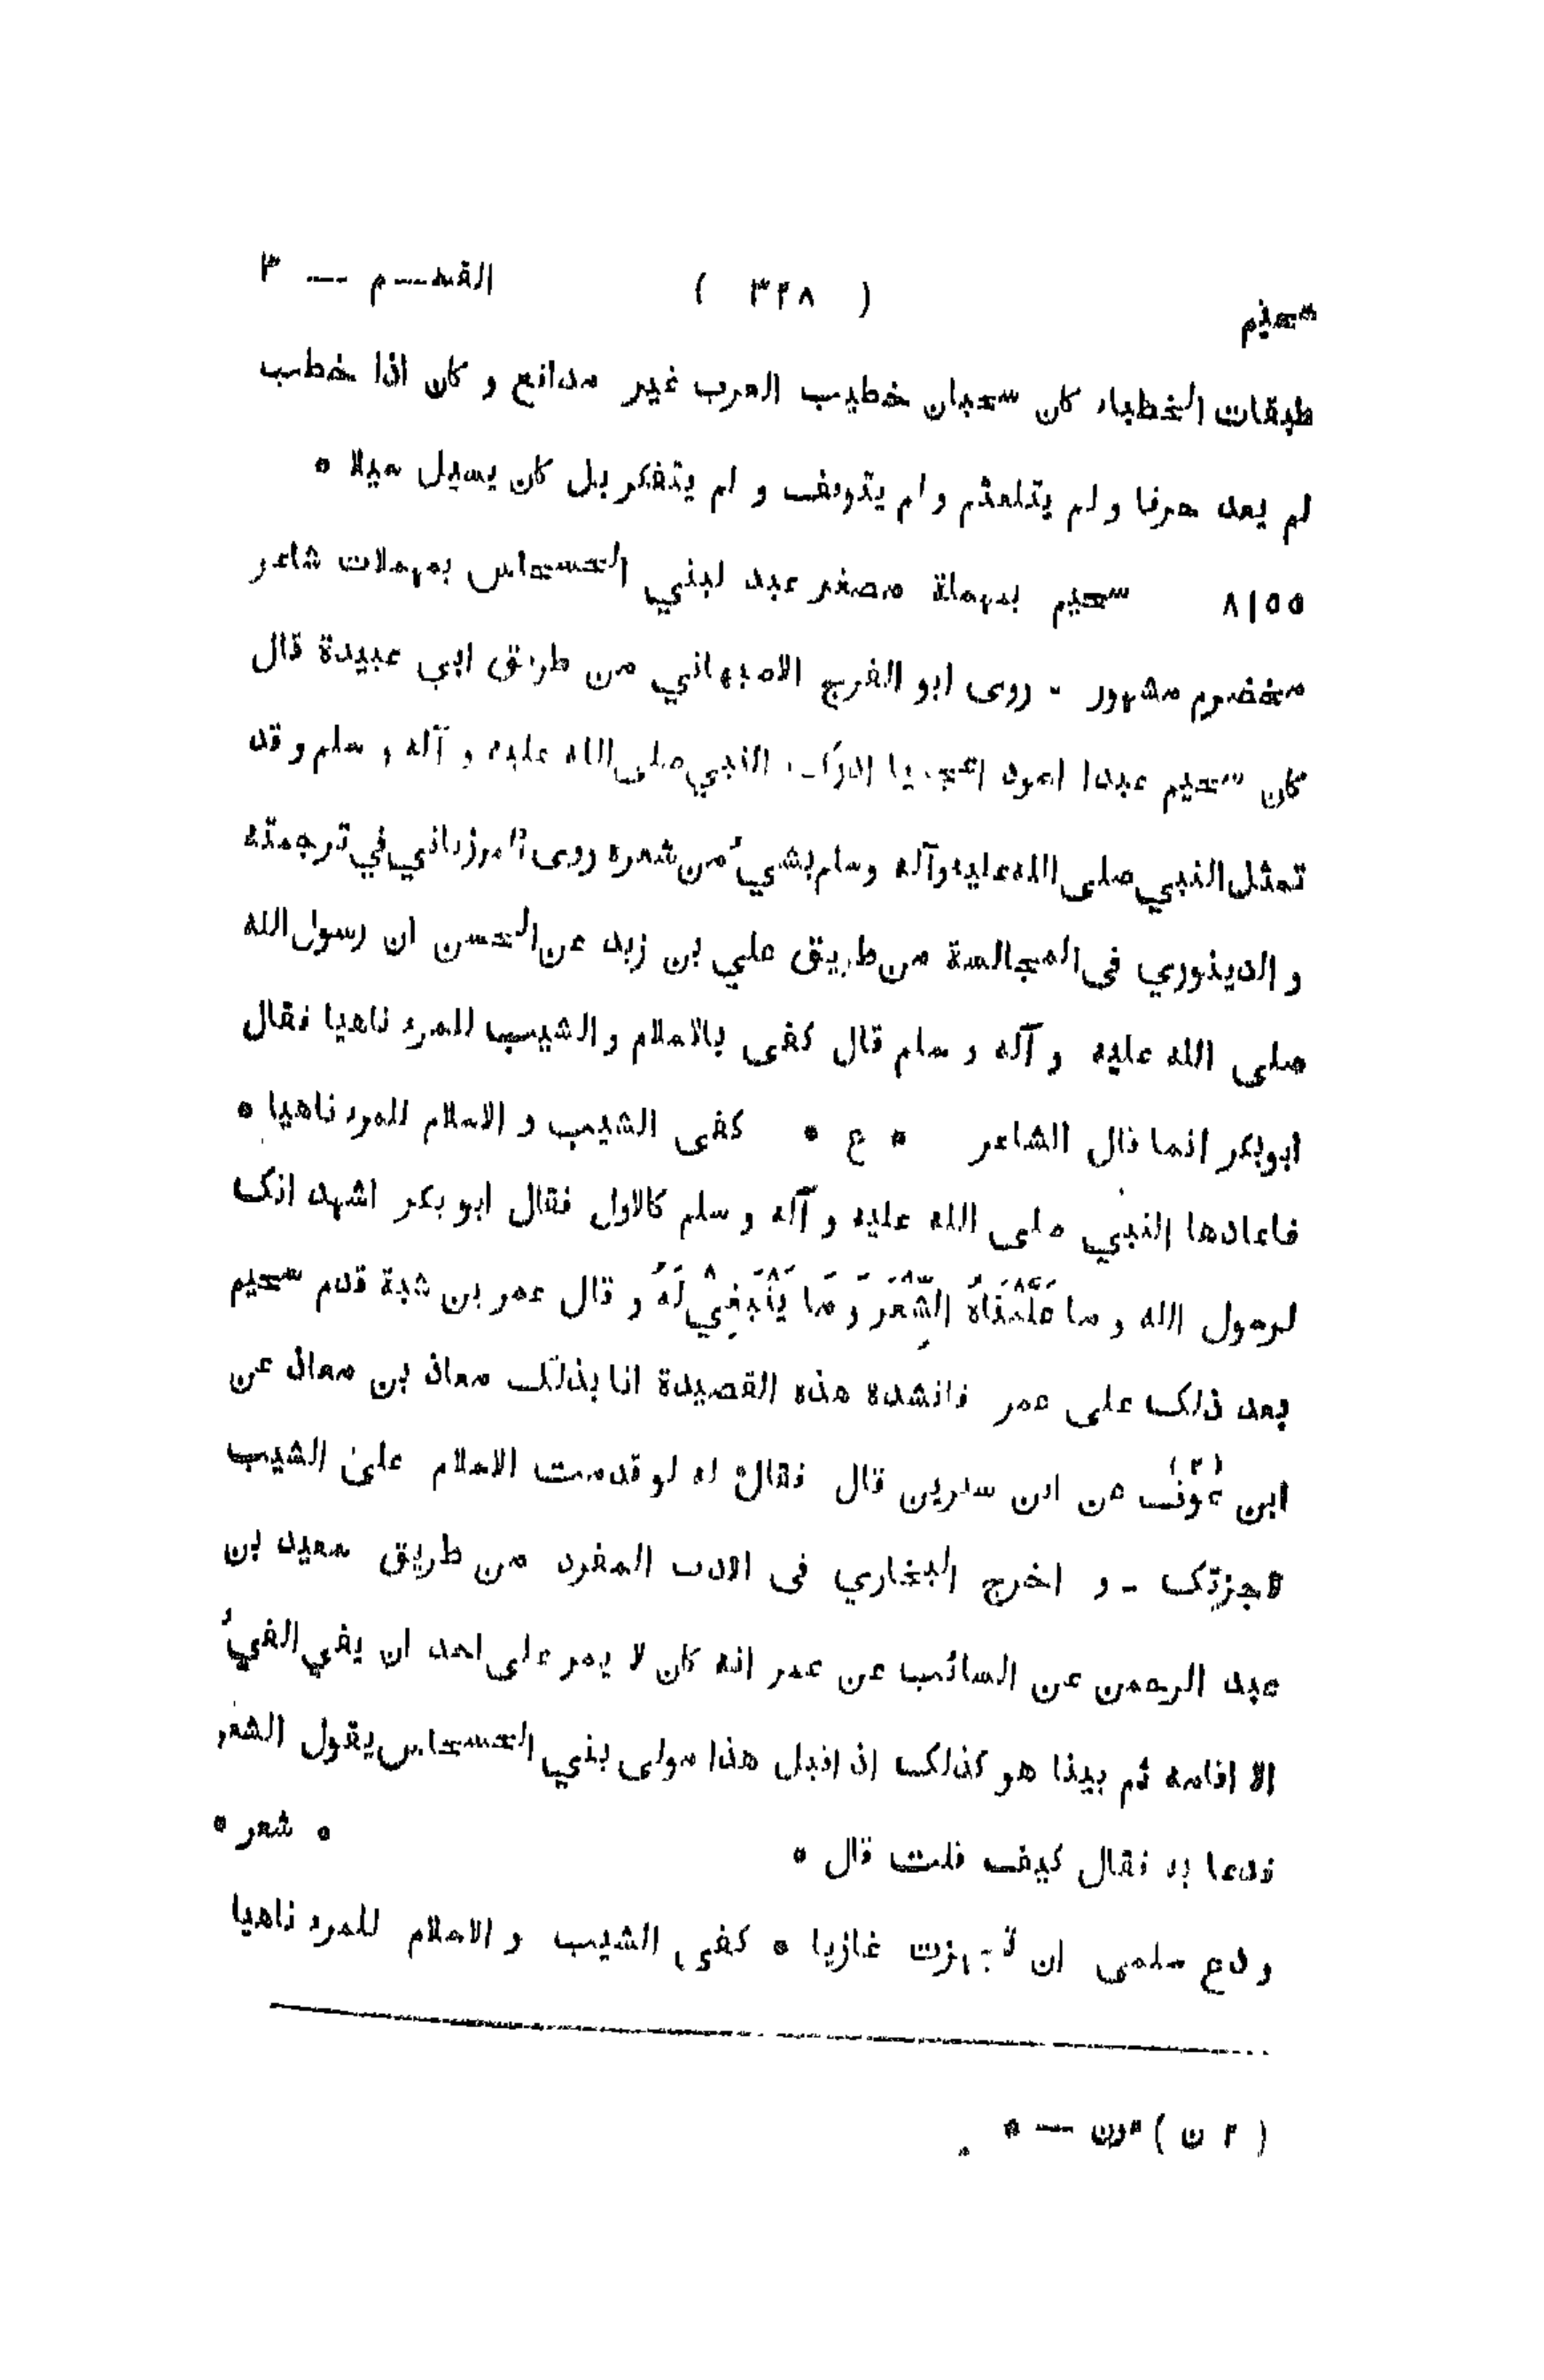 سحيم ( ٣٢٨ ) القســم — ٣
طبقات الخطباء كان سحبان خطيب العرب غير مدافع و كان اذا خطب
لم يعد حرفا و لم يتلعثم و لم يتوقف و لم يتفكر بل كان يسيل سيلا *
٨١٥٥ سحيم بمهملة مصغر عبد لبني الحسحاس بمهملات شاعر
مخضرم مشهور - روى ابو الفرج الاصبهاني من طريق ابي عبيدة قال
كان سحيم عبدا اسود اعجميا ادرك النبي صلى الله عليه و آله و سلم و قد
تمثل النبي صلى الله عليه وآله وسلم بشيءُ من شعره روى المرزباني في ترجمته
و الدينوري فى المجالسة من طريق علي بن زيد عن الحسن ان رسول الله
صلى الله عليه و آله و سلم قال كفى بالاسلام و الشيب للمرء ناهيا فقال
ابوبكر انما قال الشاعر * ع * كفى الشيب و الاسلام للمرء ناهيا *
فاعادها النبي صلى الله عليه و آله و سلم كالاول فقال ابو بكر اشهد انك
لرسول الله و ما عَلَّمْنَاهُ الشِّعْرَ وَ مَا يَنْبَغِيْ لَهُ و قال عمر بن شبة قدم سحيم
بعد ذلك على عمر فانشده هذه القصيدة انا بذلك معاذ بن معاذ عن
ابن عوف (٢) عن ابن سيرين قال فقال له لو قدمت الاسلام على الشيب
لاجزتك - و اخرج البخاري فى الادب المفرد من طريق سعيد بن
عبد الرحمن عن السائب عن عمر انه كان لا يمر على احد ان يفي الفيءُ
الا اقامه ثم بينا هو كذلك اذ اقبل هذا مولى بني الحسحاس يقول الشعر
فدعا به فقال كيف قلت قال * * شعر *
ودع سلمى ان تجهزت غازيا * كفى الشيب و الاسلام للمرء ناهيا
( ٢ ن ) عون — *